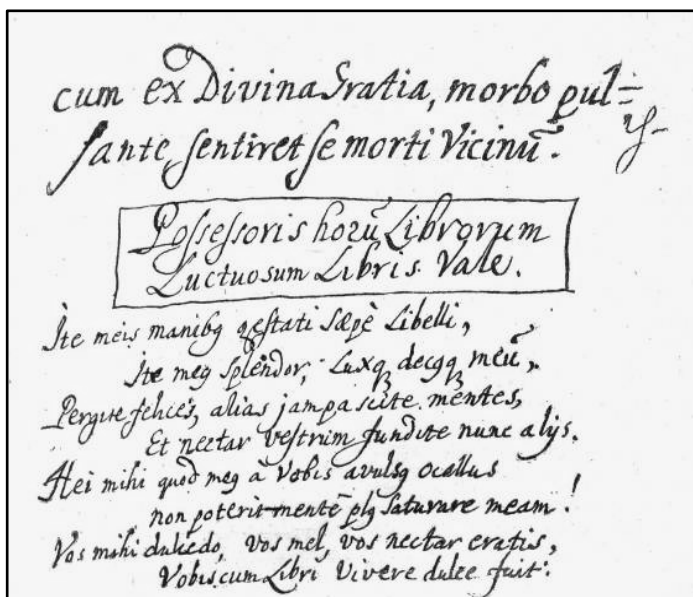 cum ex Divina Gratia, morbo pul=
sante, sentiret se morti Vicinū.
Possessoris horū Librorum
Luctuosum Libris Vale.
Ite meis manibꝫ gestati sæpè Libelli,
Ite meꝰ splendor, Luxqꝫ decꝰqꝫ meū,
Pergite felices, alias jam pascite mentes,
Et nectar vestrum fundite nunc alijs.
Hei mihi quod meꝰ à Vobis avulsꝰ ocellus
non poterit mentē plꝰ saturare meam!
Vos mihi dulcedo, vos mel, vos nectar eratis,
Vobiscum Libri Vivere dulce fuit.